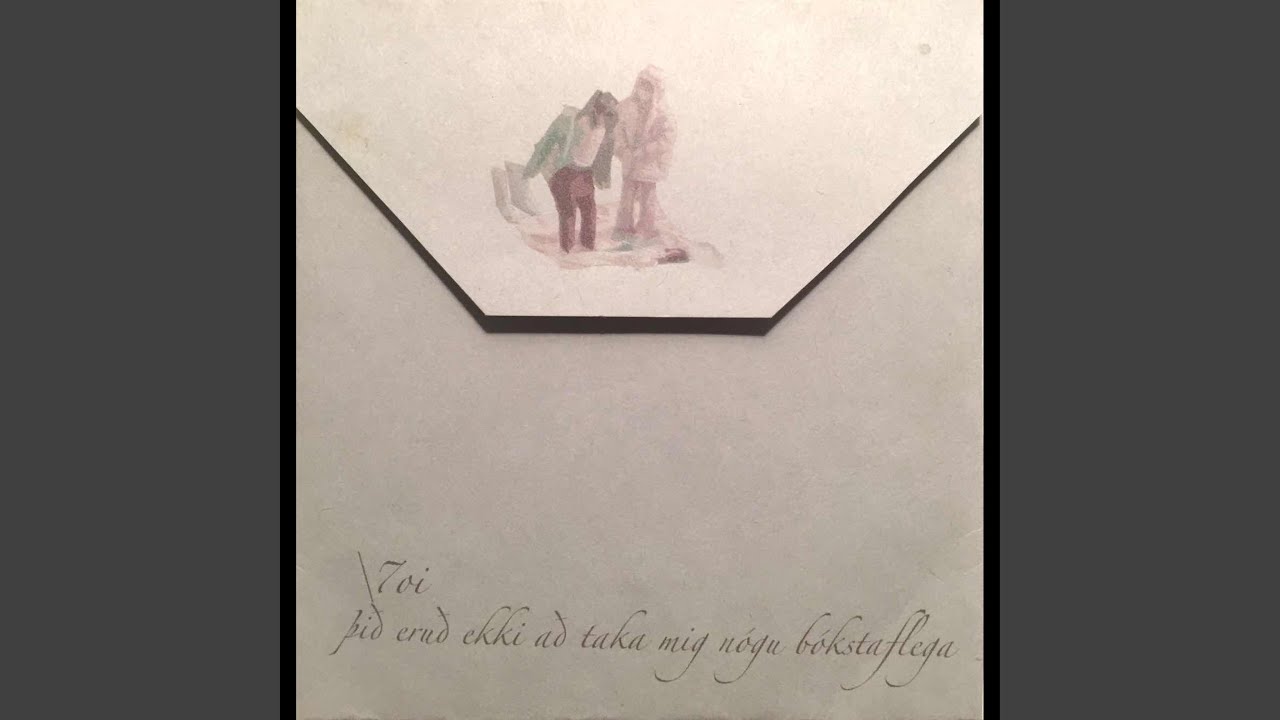 \7oi
þið eruð ekki að taka mig nógu bókstaflega